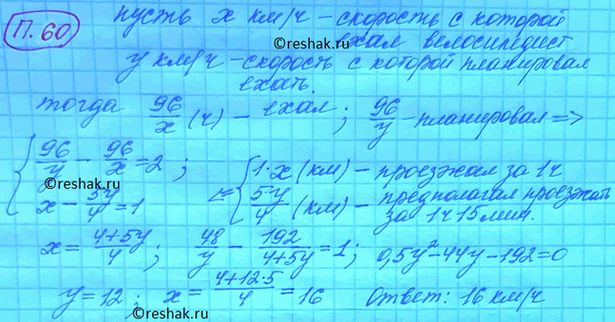 П. 60 пусть x км/ч – скорость с которой
ехал велосипедист
y км/ч – скорость с которой планировал
ехать.
©reshak.ru
тогда 96/x (ч) – ехал; 96/y – планировал =>
{ 96/y – 96/x = 2; { 1·x (км) – проезжал за 1ч
x – 5y/4 = 1 <= 5y/4 (км) – предполагал проезжать
за 1ч 15 мин.
©reshak.ru
©reshak.ru
x = 4+5y/4; 48/y – 192/4+5y = 1; 0,5y² – 44y – 192 = 0
y = 12; x = 4+12·5/4 = 16 Ответ: 16 км/ч
©reshak.ru